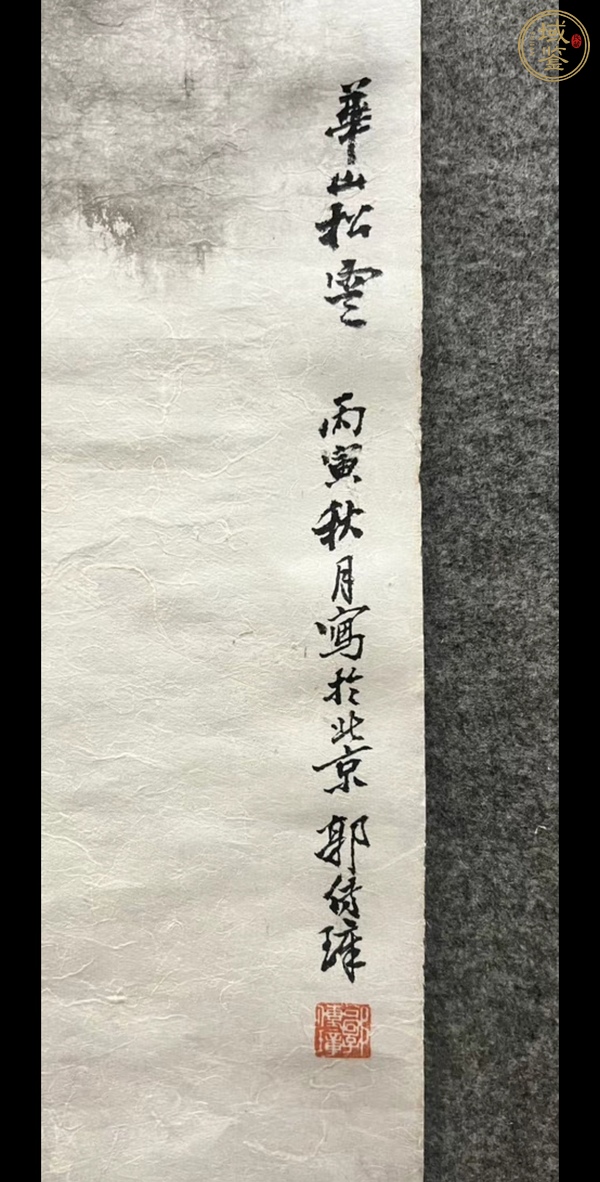 華山松雲
丙寅秋月寫於北京 郭傳璋
郭傳璋
域鉴